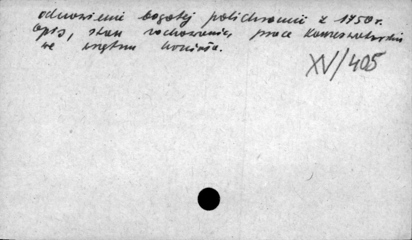 odnowieniu bogatej polichromii z 1750 r.
Opis, stan zachowania, prace konserwatorskie
we wnętrzu kościoła.
XV/405